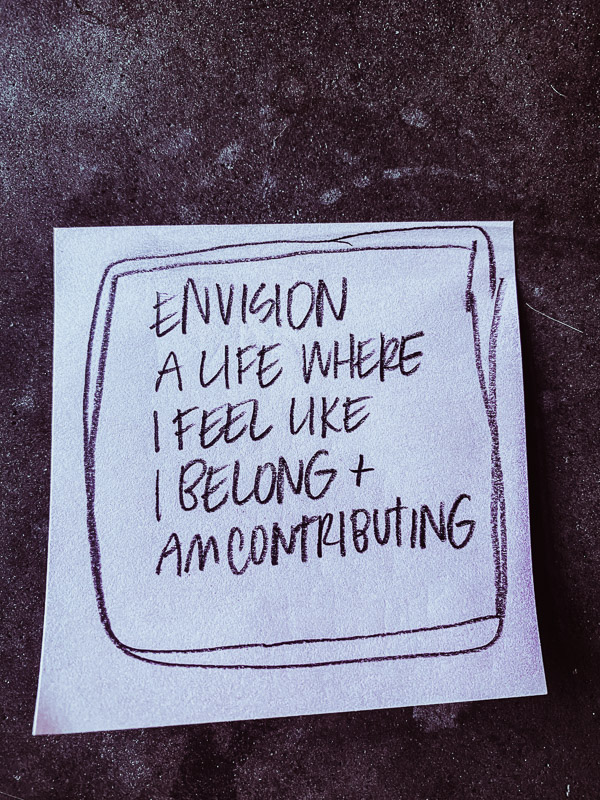 ENVISION
A LIFE WHERE
I FEEL LIKE
I BELONG +
AM CONTRIBUTING